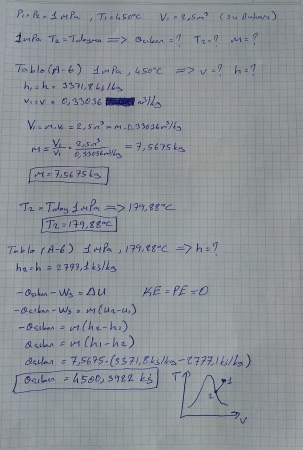 P₁=P₂=1MPa , T₁=450°C V₁=2,5m³ (su buharı)
1MPa T₂=Tdoyma => Qçıkan=? T₂=? m=?
Tablo (A-6) 1MPa, 450°C => v=? h=?
h₁=h= 3371,8 kJ/kg
v₁=v= 0,33036 m³/kg
V₁=m.v₁ = 2,5m³ = m.0,33036m³/kg
m= V₁/v₁ = 2,5m³/0,33036m³/kg = 7,5675kg
m=7,5675kg
T₂=Tdoy 1MPa => 179,88°C
T₂=179,88°C
Tablo (A-6) 1MPa, 179,88°C => h=?
h₂=h= 2777,1kJ/kg
-Qçıkan-Ws=ΔU KE=PE=0
-Qçıkan-Ws=m(u₂-u₁)
-Qçıkan=m(h₂-h₁)
Qçıkan=m(h₁-h₂)
Qçıkan=7,5675.(3371,8kJ/kg-2777,1kJ/kg)
Qçıkan=4500,3922 kJ
T 1
2
V